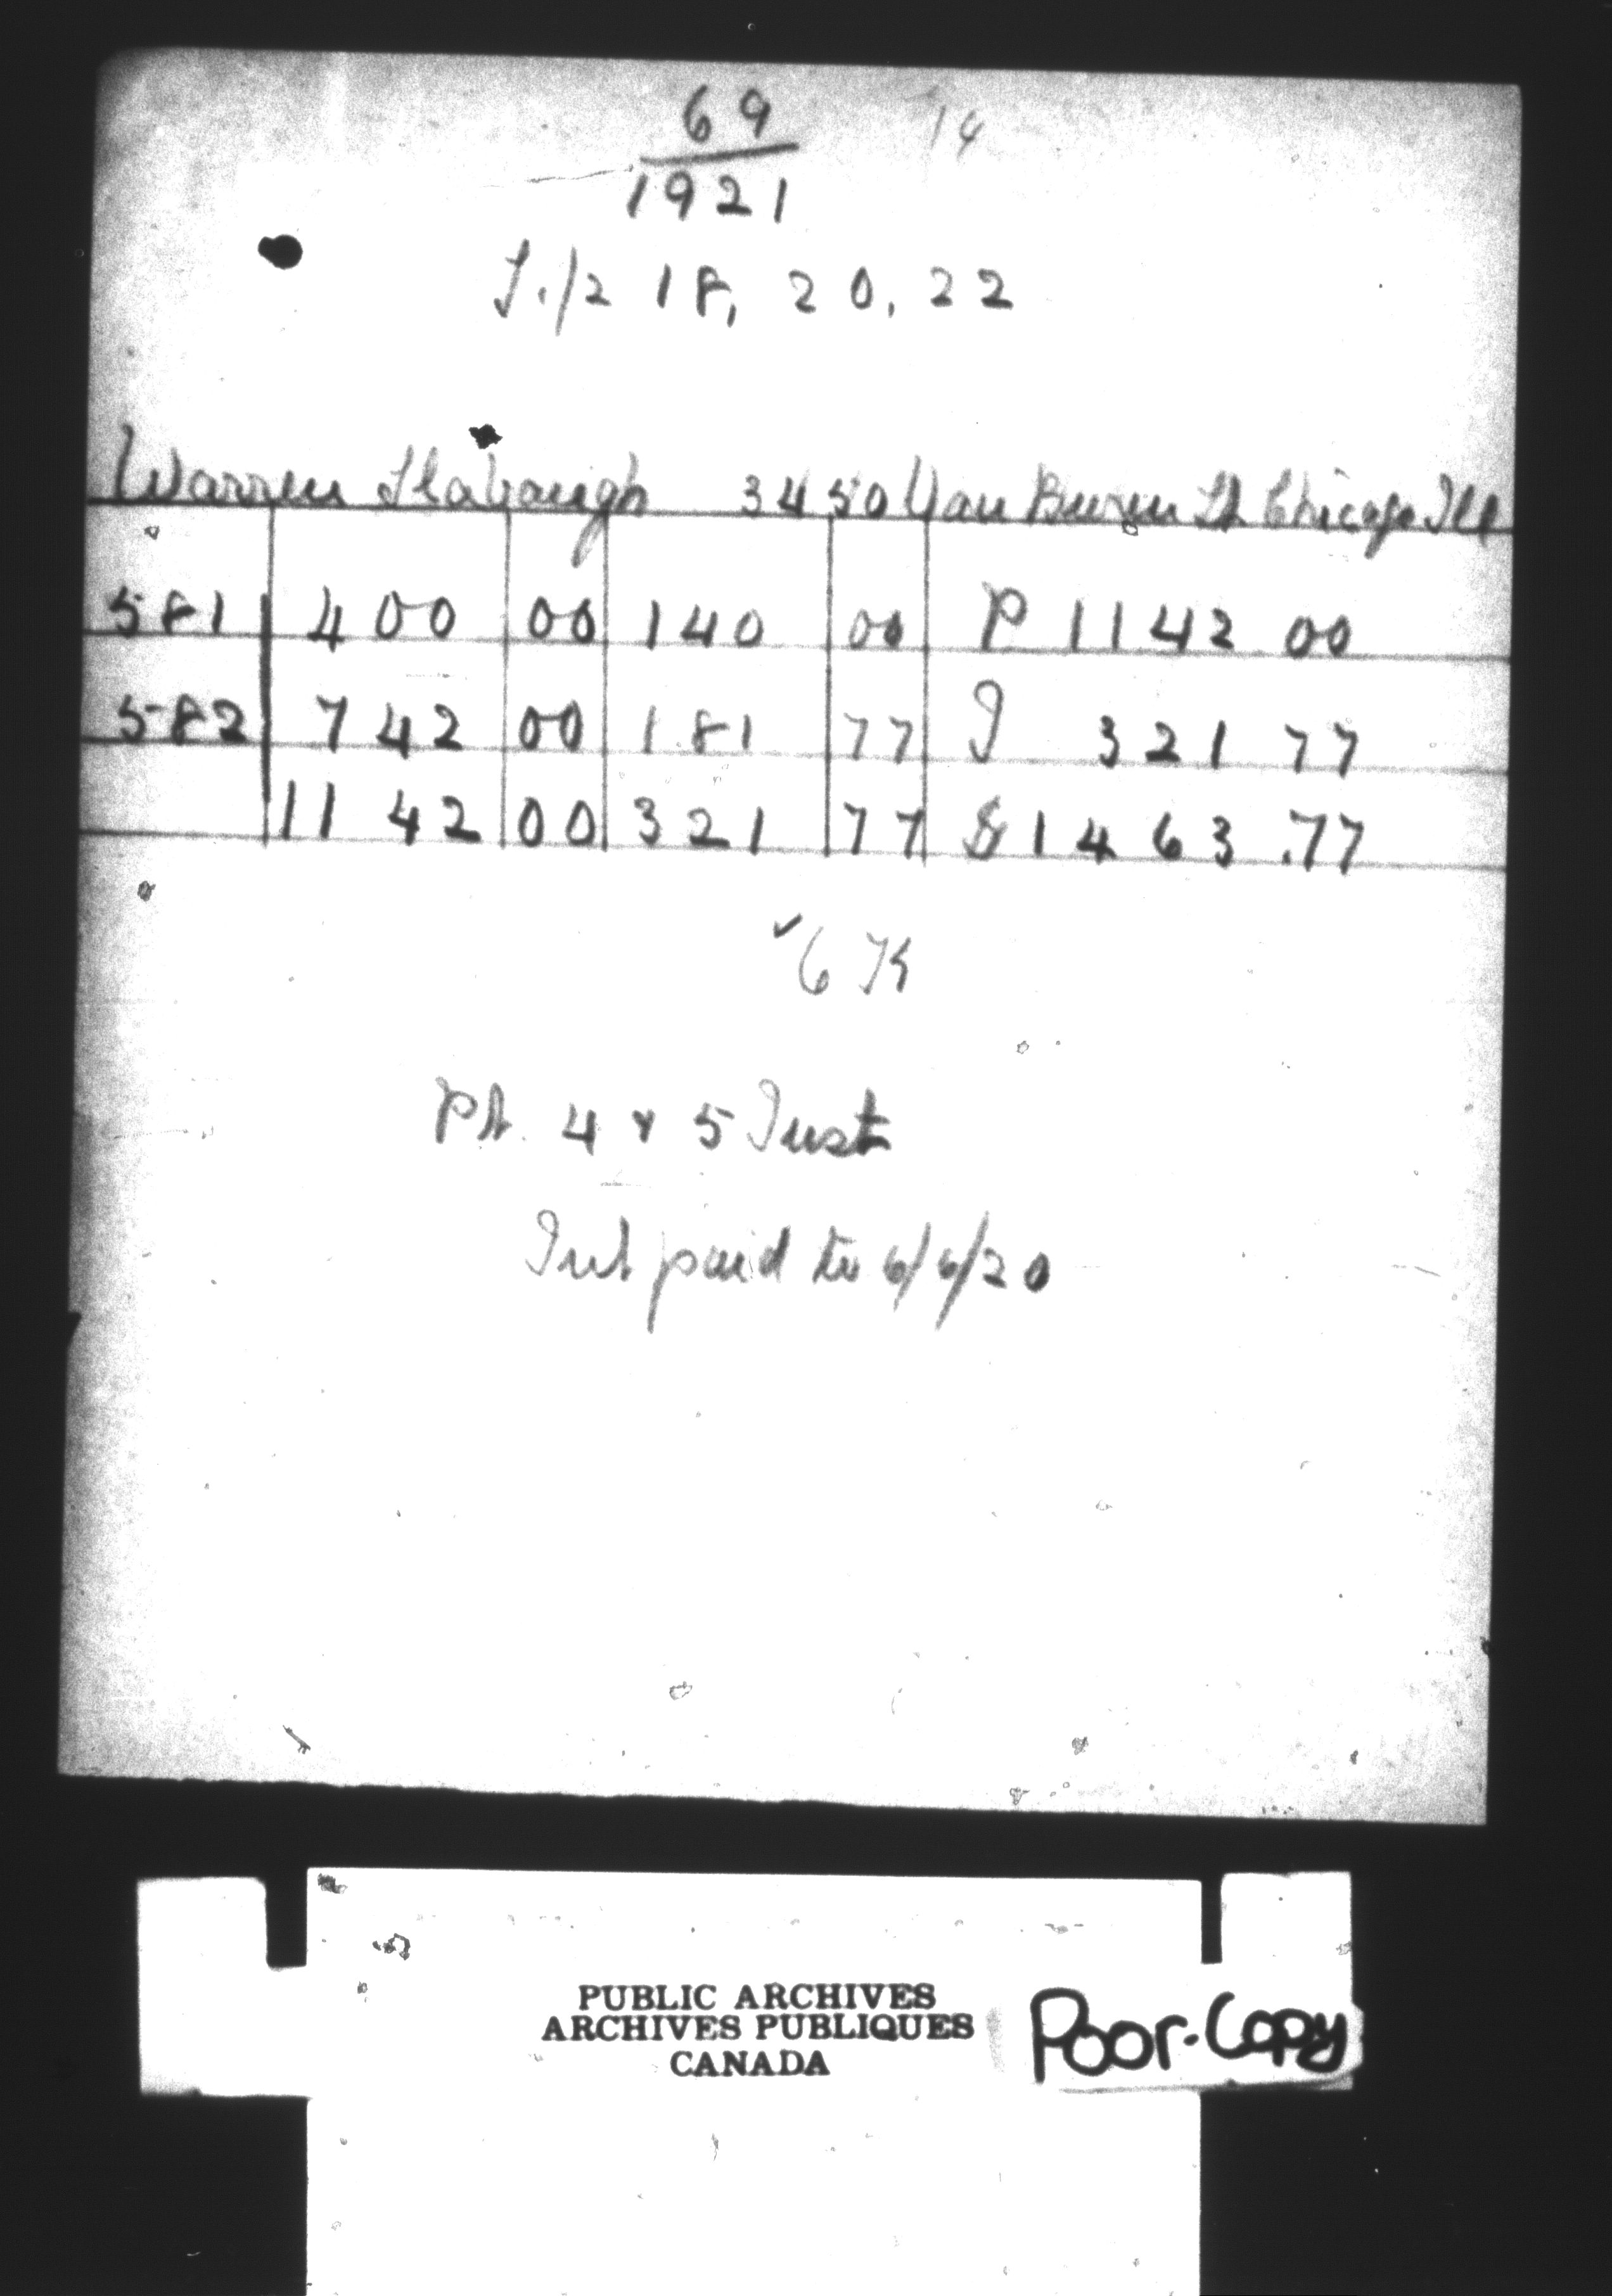 69 14
1921
S./2 18, 20, 22
Warren Slabaugh 3450 Van Buren St Chicago Ill
581 400 00 140 00 P 1142 00
582 742 00 181 77 I 321 77
1142 00 321 77 $1463.77
Pt. 4 & 5 Inst
Int paid to 6/6/20
PUBLIC ARCHIVES
ARCHIVES PUBLIQUES
CANADA
Poor-Copy